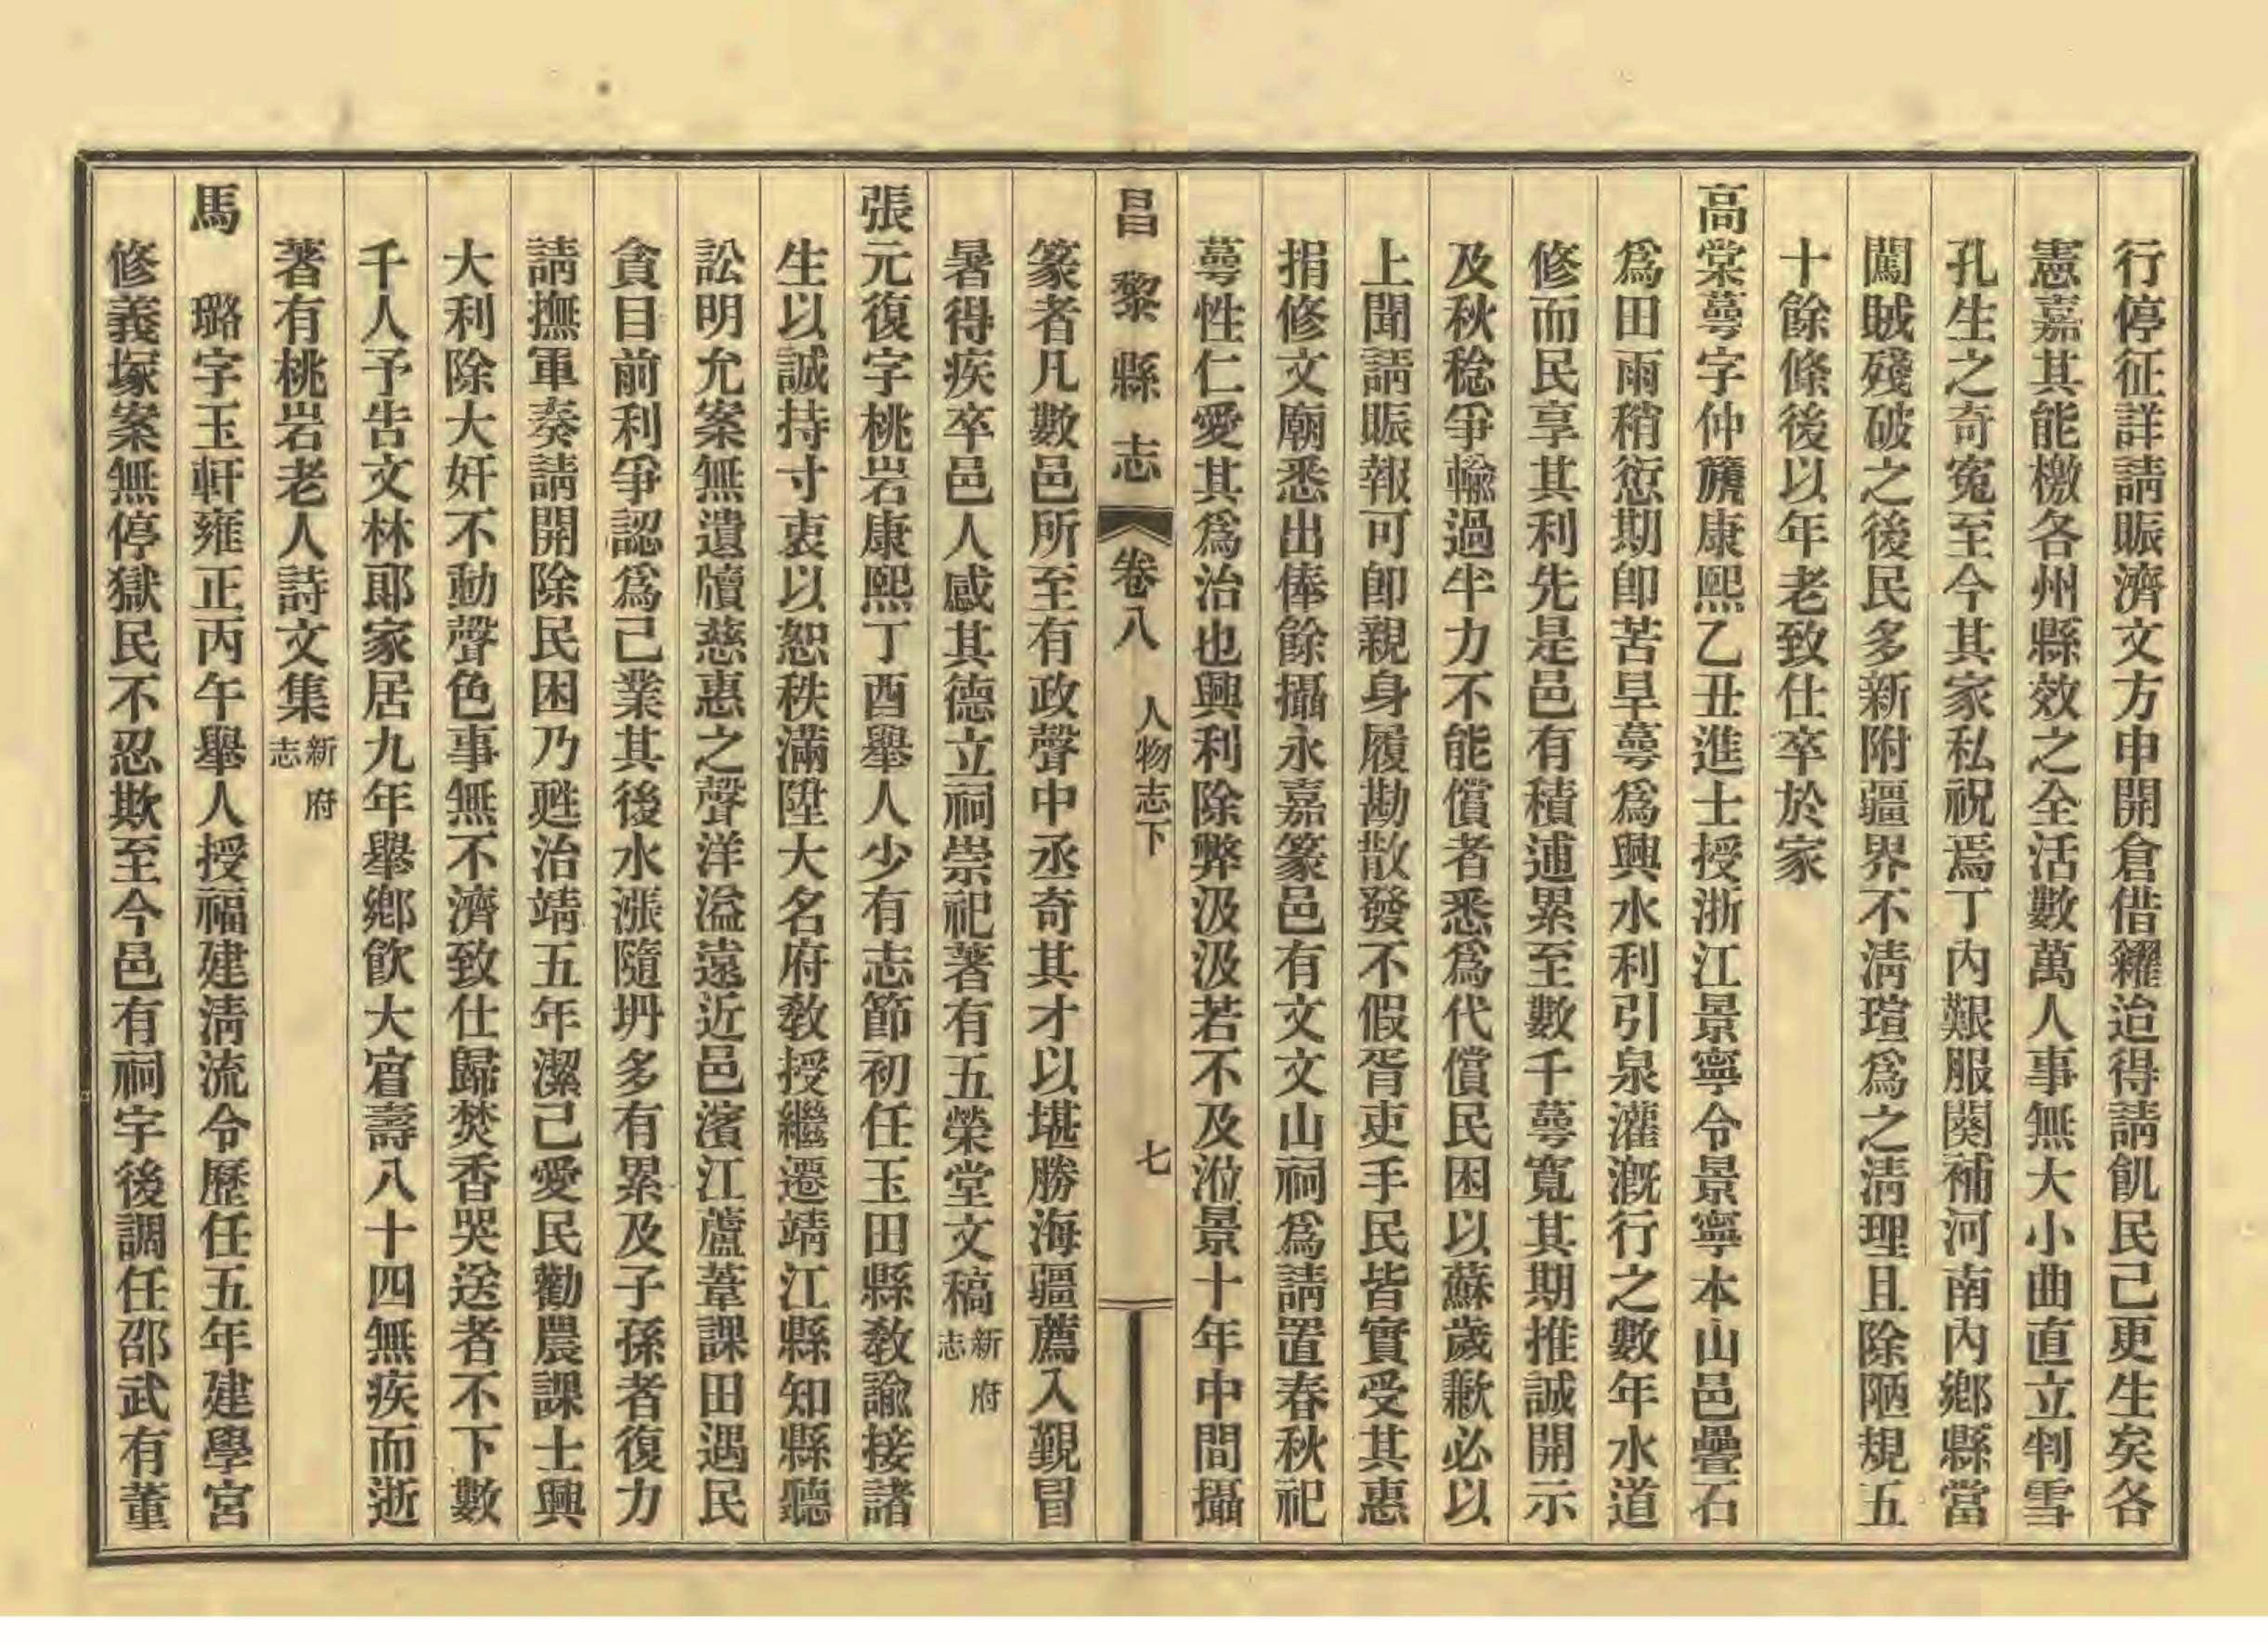 行停征詳請賑濟文方申開倉借糴迨得請飢民已更生矣各
憲嘉其能檄各州縣效之全活數萬人事無大小曲直立判雪
孔生之奇寃至今其家私祝焉丁內艱服闋補河南內鄉縣當
闖賊殘破之後民多新附疆界不淸瑄爲之淸理且除陋規五
十餘條後以年老致仕卒於家
高棠蕚字仲箎康熙乙丑進士授浙江景寧令景寧本山邑疊石
爲田雨稍愆期卽苦旱蕚爲興水利引泉灌漑行之數年水道
修而民享其利先是邑有積逋累至數千蕚寬其期推誠開示
及秋稔爭輸過半力不能償者悉爲代償民困以蘇歲歉必以
上聞請賑報可卽親身履勘散發不假胥吏手民皆實受其惠
捐修文廟悉出俸餘攝永嘉篆邑有文文山祠爲請置春秋祀
蕚性仁愛其爲治也興利除弊汲汲若不及涖景十年中間攝
昌黎縣志 卷八 人物志下 七
篆者凡數邑所至有政聲中丞奇其才以堪勝海疆薦入覲冒
暑得疾卒邑人感其德立祠崇祀著有五榮堂文稿新府志
張元復字桃岩康熙丁酉舉人少有志節初任玉田縣敎諭接諸
生以誠持寸衷以恕秩滿陞大名府敎授繼遷靖江縣知縣聽
訟明允案無遺牘慈惠之聲洋溢遠近邑濱江蘆葦課田遇民
貪目前利爭認爲己業其後水漲隨坍多有累及子孫者復力
請撫軍奏請開除民困乃甦治靖五年潔己愛民勸農課士興
大利除大奸不動聲色事無不濟致仕歸焚香哭送者不下數
千人予告文林郞家居九年舉鄉飮大賓壽八十四無疾而逝
著有桃岩老人詩文集新府志
馬 璐字玉軒雍正丙午舉人授福建淸流令歷任五年建學宮
修義塚案無停獄民不忍欺至今邑有祠宇後調任邵武有董